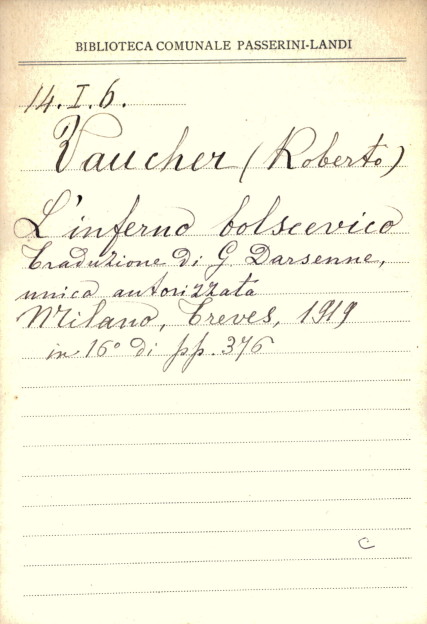 BIBLIOTECA COMUNALE PASSERINI-LANDI
14.I.6.
Vaucher (Roberto)
L'inferno bolscevico
Traduzione di G Darsenne,
unica autorizzata
Milano, Treves, 1919
in 16° di pp. 376
C